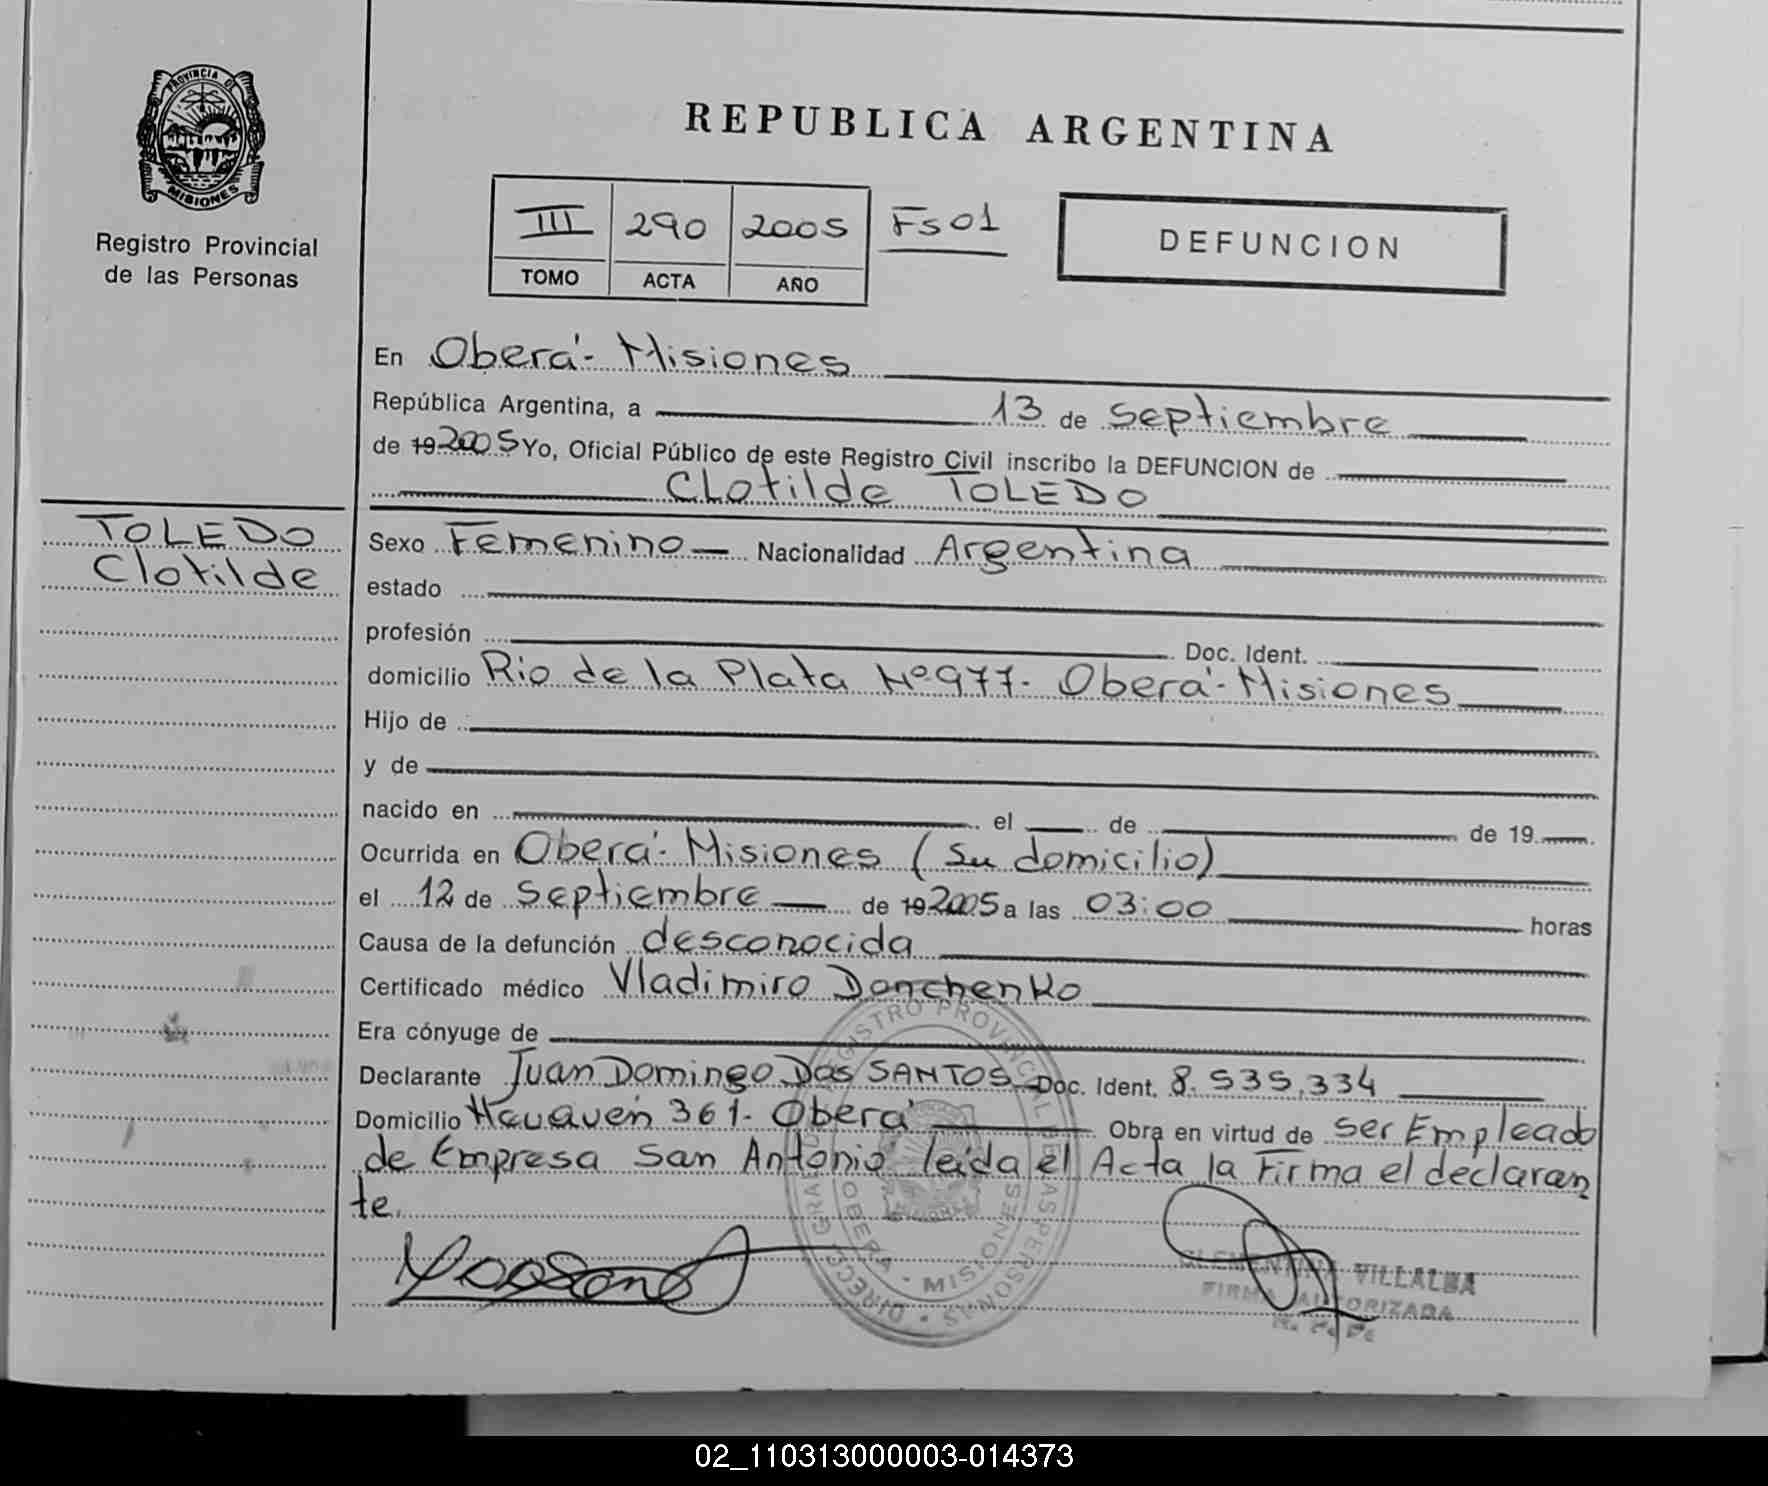 PROVINCIA DE
MISIONES
Registro Provincial
de las Personas
REPUBLICA ARGENTINA
III 290 2005 Fs01
TOMO ACTA AÑO
DEFUNCION
En Oberá - Misiones
República Argentina, a 13 de Septiembre
de 19 2005 Yo, Oficial Público de este Registro Civil inscribo la DEFUNCION de
Clotilde TOLEDO
TOLEDO
Clotilde
Sexo Femenino Nacionalidad Argentina
estado
profesión Doc. Ident.
domicilio Rio de la Plata Nº 977- Oberá - Misiones
Hijo de
y de
nacido en el de de 19
Ocurrida en Oberá - Misiones (Su domicilio)
el 12 de Septiembre de 19 2005 a las 03:00 horas
Causa de la defunción desconocida
Certificado médico Vladimiro Donchenko
Era cónyuge de
Declarante Juan Domingo Dos SANTOS Doc. Ident. 8.535.334
Domicilio 361- Oberá Obra en virtud de ser Empleado
de Empresa San Antonio leida el Acta la Firma el declaran
te.
REGISTRO PROVINCIAL DE LAS PERSONAS
OBERA - MISIONES
VILLALBA
FIRMA AUTORIZADA
02_110313000003-014373